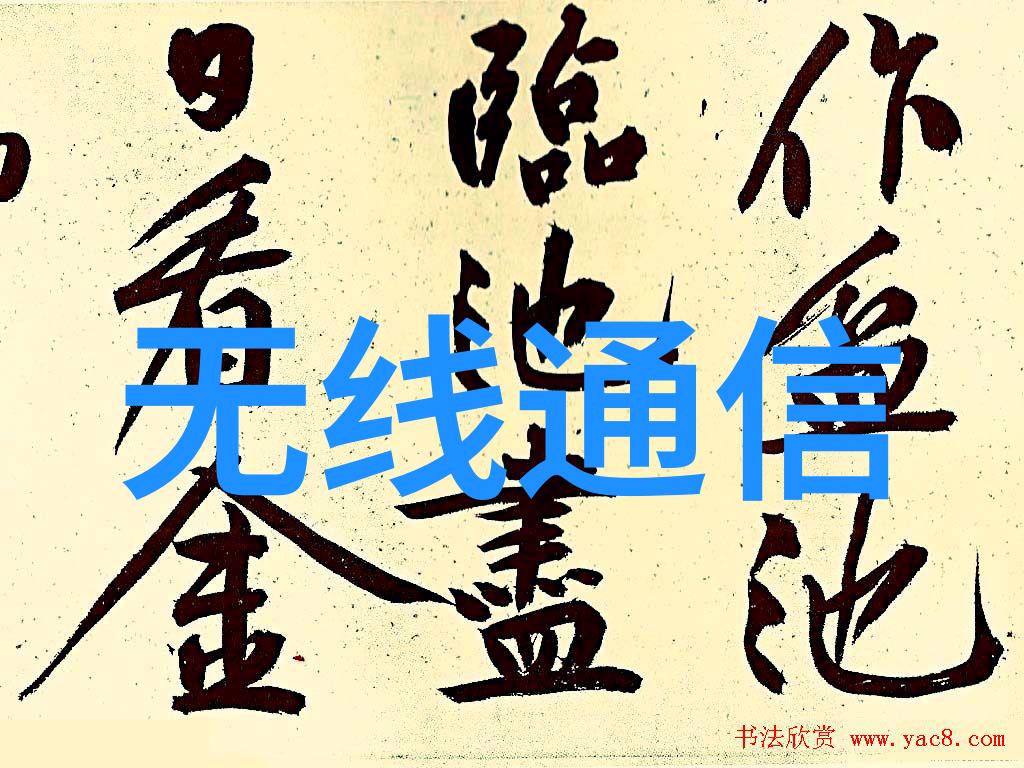 作盈池
臨池盡
日看金
无线通信
书法欣赏 www.yac8.com